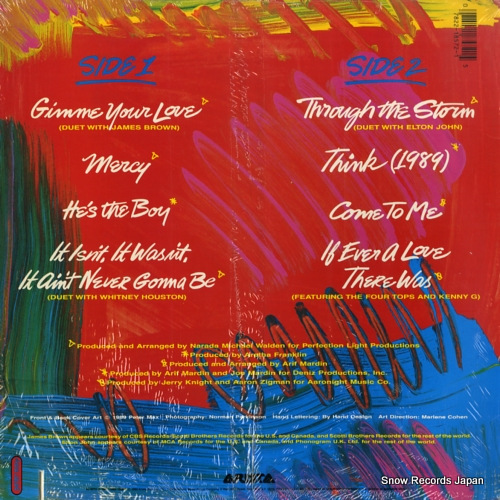 SIDE 1
Gimme Your Love
(DUET WITH JAMES BROWN)
Mercy
He's the Boy
It Isn't, It Wasn't,
It Ain't Never Gonna Be
(DUET WITH WHITNEY HOUSTON)
SIDE 2
Through the Storm
(DUET WITH ELTON JOHN)
Think (1989)
Come To Me
If Ever A Love
There Was
(FEATURING THE FOUR TOPS AND KENNY G)
Produced and Arranged by Narada Michael Walden for Perfection Light Productions
Produced by Aretha Franklin
Produced and Arranged by Arif Mardin
Produced by Arif Mardin and Joe Mardin for Deniz Productions, Inc.
Produced by Jerry Knight and Aaron Zigman for Aaronight Music Co.
Front & Back Cover Art © 1989 Peter Max Photography: Norman Parkinson Hand Lettering: By Hand Design Art Direction: Marlene Cohen
James Brown appears courtesy of CBS Records/Scotti Brothers Records for the U.S. and Canada, and Scotti Brothers Records for the rest of the world.
Elton John appears courtesy of MCA Records for the U.S. and Canada, and Phonogram U.K. Ltd. for the rest of the world.
ARISTA
Snow Records Japan